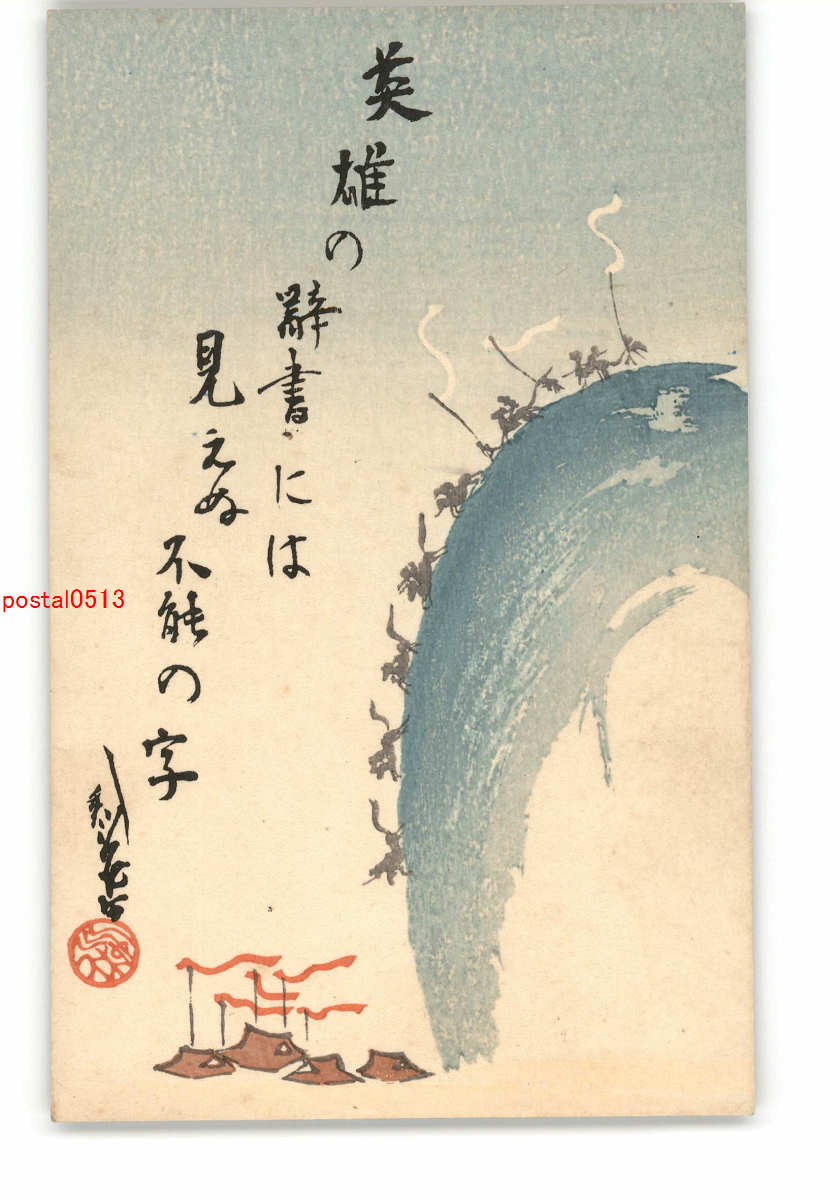 英雄の
辭書には
見えぬ
不能の字
postal0513